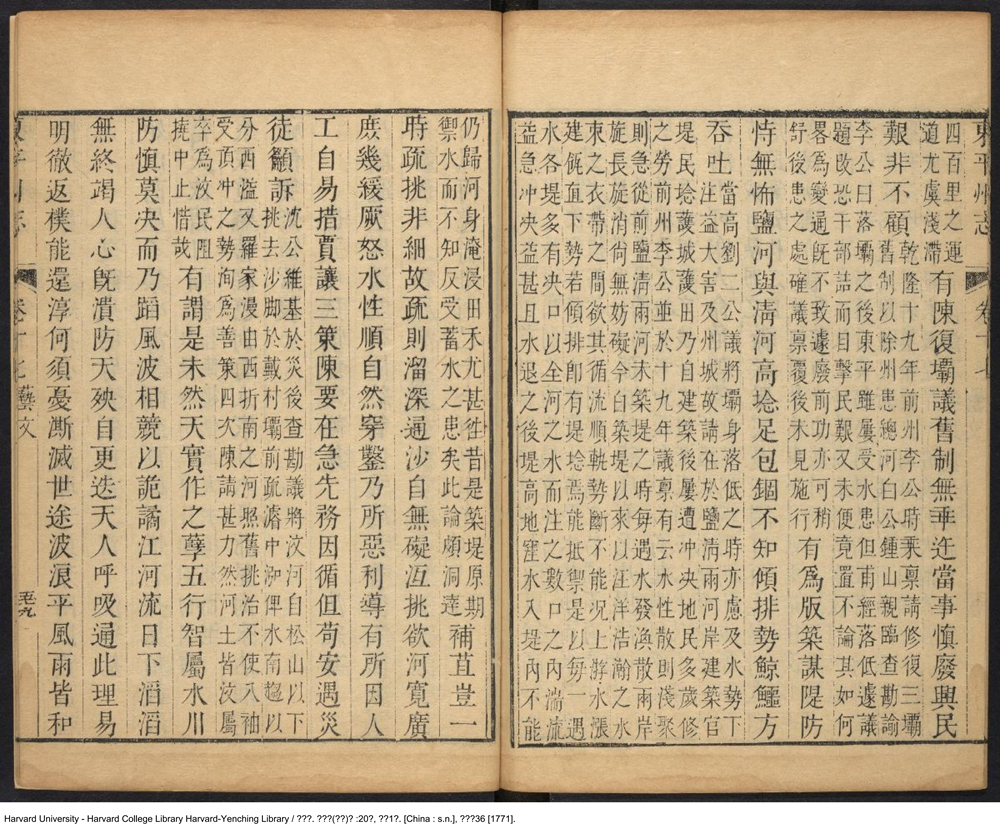 東平州志 卷十七
四百里之運
道尤虞淺滯 有陳復壩議舊制無乖迕當事慎廢興民
艱非不顧 乾隆十九年前州李公時乘稟請修復三壩
舊制以除州患總河白公鍾山親臨查勘諭
李公曰落壩之後東平雖屢受水患但甫經落低遽議
題改恐干部詰而目擊民艱又未便竟置不論其如何
畧為變通旣不致遽廢前功亦可稍
舒後患之處確議稟覆後未見施行 有為版築謀隄防
恃無怖鹽河與淸河高埝足包錮不知傾排勢鯨鱷方
吞吐 當高劉二公議將壩身落低之時亦慮及水勢下
注益大害及州城故請在於鹽淸兩河岸建築官
堤民埝護城護田乃自建築後屢遭冲决地民多歲修
之勞前州李公並於十九年議稟有云水性散則淺聚
則急從前鹽淸兩河未築堤之時每遇水發渙散兩岸
旋長旋消尙無妨礙今自築堤以來以汪洋浩瀚之水
束之衣帶之間欲其循流順軌勢斷不能况上游水漲
建瓴直下勢若傾排卽有堤埝焉能抵禦是以每一遇
水各堤多有央口以全河之水而注之數口之內湍流
益急冲央益甚且水退之後堤高地窪水入堤內不能
仍歸河身淹浸田禾尤甚徃昔是築堤原期
禦水而不知反受蓄水之患矣此論頗洞達 補苴豈一
時疏挑非細故疏則溜深通沙自無礙沍挑欲河寬廣
庶幾緩厥怒水性順自然穿鑿乃所惡利導有所因人
工自易措賈讓三策陳要在急先務因循但苟安遇災
徒籲訴 沈公維基於災後查勘議將汶河自松山以下
挑去沙脚於戴村壩前疏濬中泓俾水南趨以
分西溢又羅家漫由西折南之河照舊挑治不使入袖
受頂冲之勢洵為善策四次陳請甚力然河土皆汶屬
卒為汶民阻
撓中止惜哉 有謂是未然天實作之孽五行智屬水川
防慎莫决而乃蹈風波相競以詭譎江河流日下滔滔
無終竭人心旣潰防天殃自更迭天人呼吸通此理易
明徹返樸能還淳何須憂澌滅世途波浪平風雨皆和
東平州志 卷十七 藝文 五九
Harvard University - Harvard College Library Harvard-Yenching Library / ???. ???(??)? :20?, ??1?. [China : s.n.], ???36 [1771].